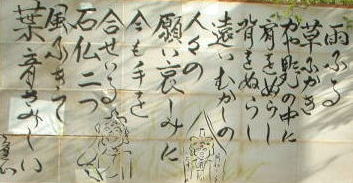 雨ふる
草ふかき
かや野の中に
肩をぬらし
背をぬらし
遠いむかしの
人々の
願い哀しみに
今も手を
合せいる
石仏二つ
風ふきて
葉音さみしい